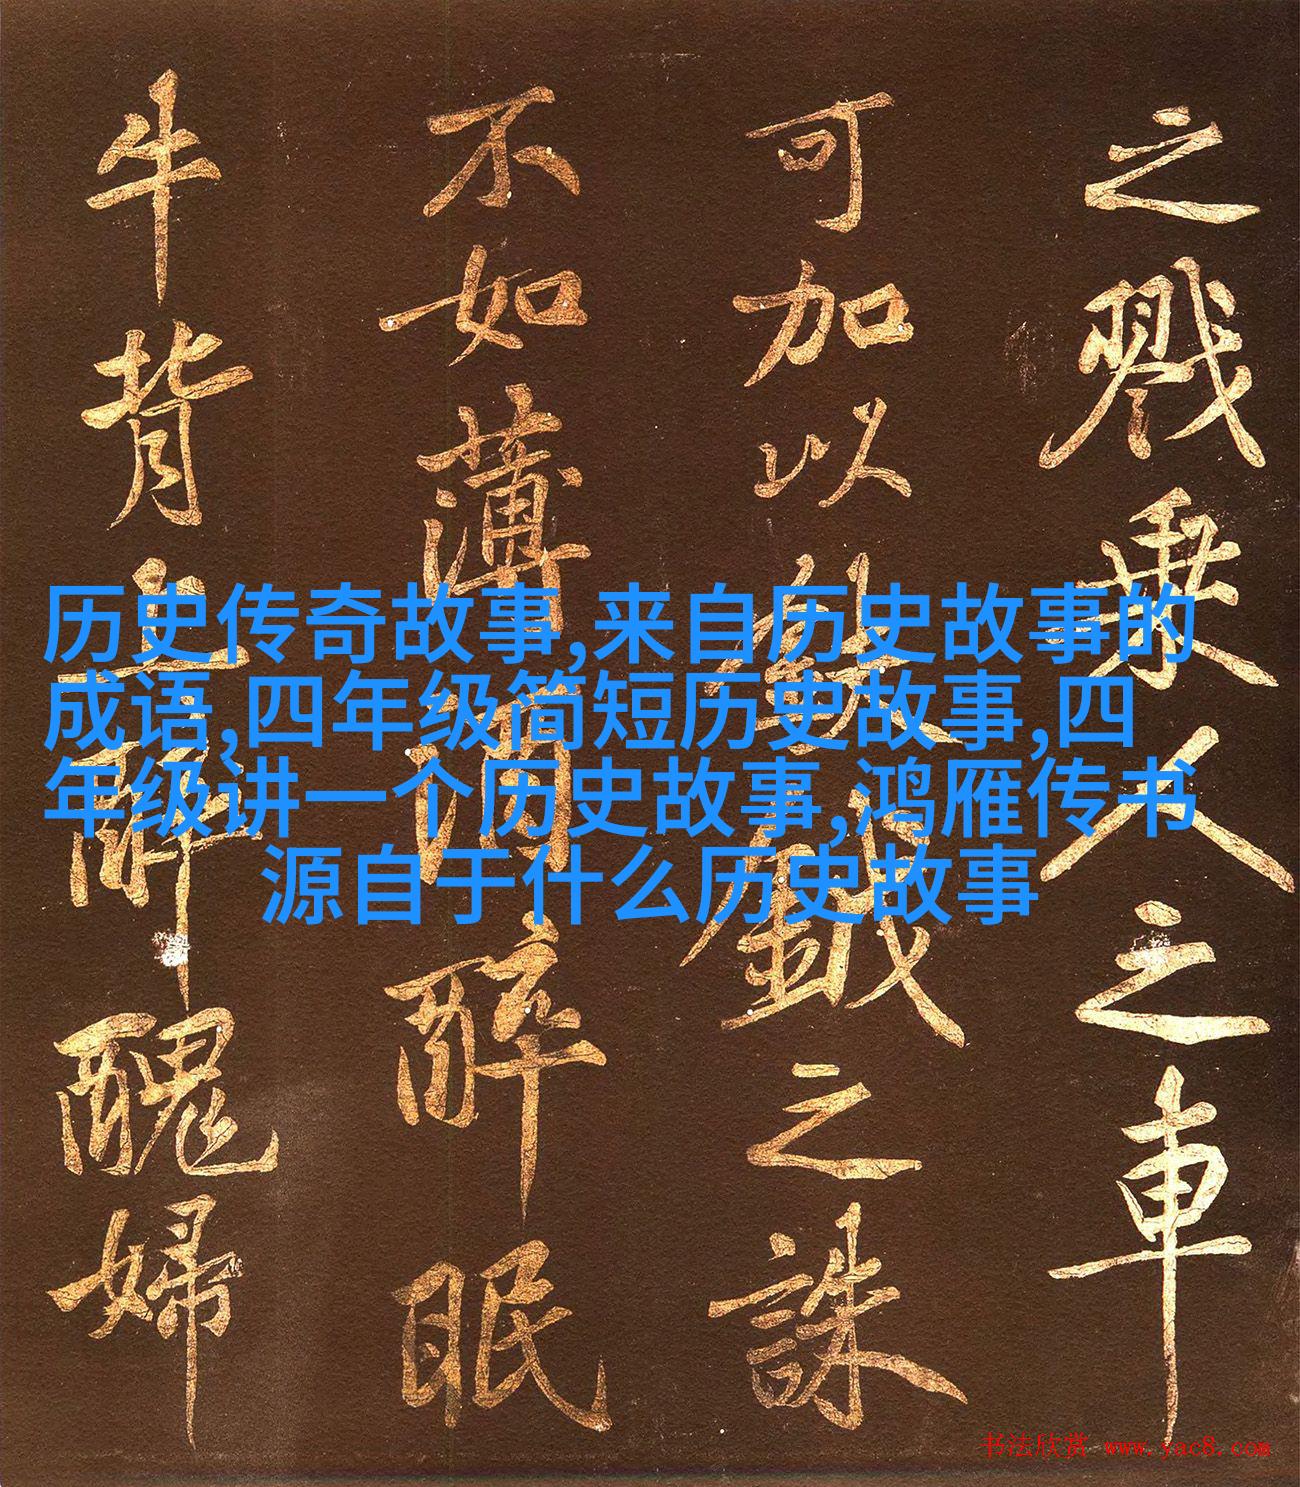 之戮乘人之車
可加以鈇鉞之誅
不如薄酒醉眠
牛背上醉醜婦
历史传奇故事,来自历史故事的
成语,四年级简短历史故事,四
年级讲一个历史故事,鸿雁传书
源自于什么历史故事
书法欣赏 www.yac8.com